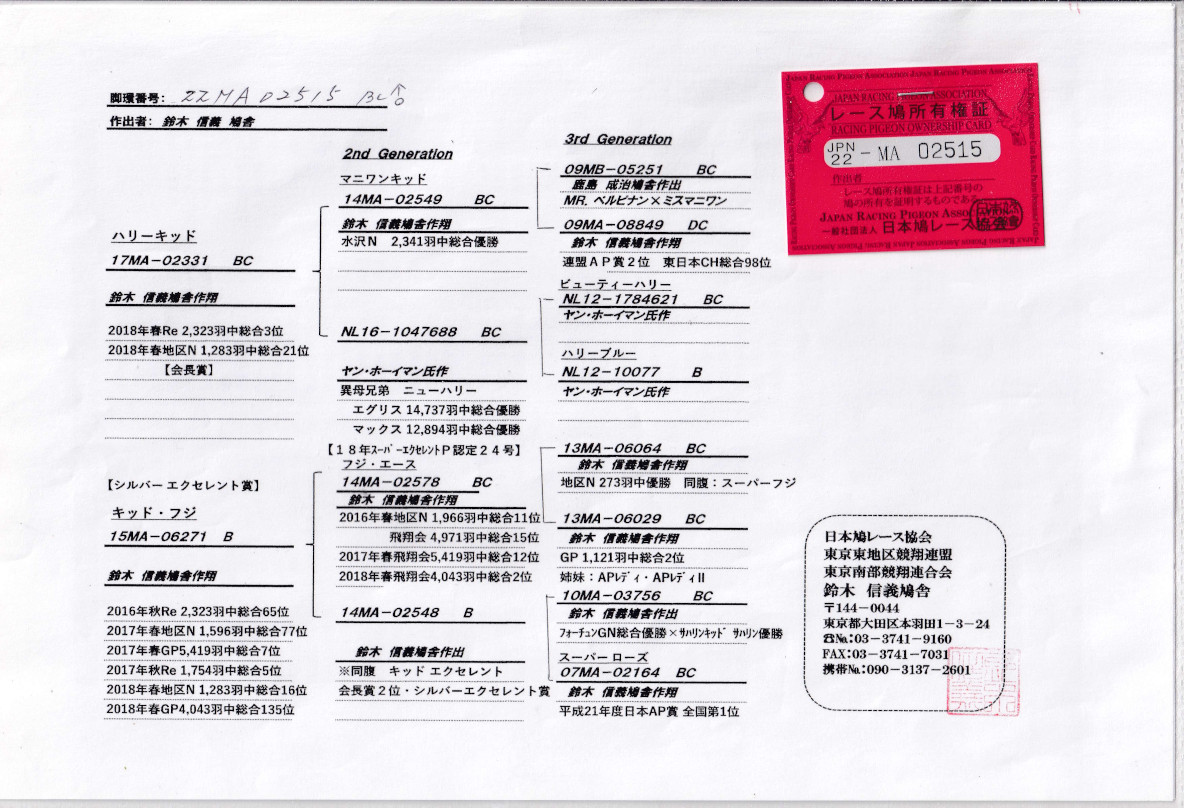 脚環番号: 22MA02515 BC♂
作出者: 鈴木 信義 鳩舎
ハリーキッド
17MA-02331 BC
鈴木 信義鳩舎作翔
2018年春Re 2,323羽中総合3位
2018年春地区N 1,283羽中総合21位
【会長賞】
【シルバー エクセレント賞】
キッド・フジ
15MA-06271 B
鈴木 信義鳩舎作翔
2016年秋Re 2,323羽中総合65位
2017年春地区N 1,596羽中総合77位
2017年春GP5,419羽中総合7位
2017年秋Re 1,754羽中総合5位
2018年春地区N 1,283羽中総合16位
2018年春GP4,043羽中総合135位
2nd Generation
マニワンキッド
14MA-02549 BC
鈴木 信義鳩舎作翔
水沢N 2,341羽中総合優勝
NL16-1047688 BC
ヤン・ホーイマン氏作
異母兄弟 ニューハリー
エグリス 14,737羽中総合優勝
マックス 12,894羽中総合優勝
【18年スーパーエクセレントP認定24号】
フジ・エース
14MA-02578 BC
鈴木 信義鳩舎作翔
2016年春地区N 1,966羽中総合11位
飛翔会 4,971羽中総合15位
2017年春飛翔会5,419羽中総合12位
2018年春飛翔会4,043羽中総合2位
14MA-02548 B
鈴木 信義鳩舎作出
※同腹 キッド エクセレント
会長賞2位・シルバーエクセレント賞
3rd Generation
09MB-05251 BC
鹿島 成治鳩舎作出
MR. ペルピナン×ミスマニワン
09MA-08849 DC
鈴木 信義鳩舎作翔
連盟AP賞2位 東日本CH総合98位
ビューティーハリー
NL12-1784621 BC
ヤン・ホーイマン氏作
ハリーブルー
NL12-10077 B
ヤン・ホーイマン氏作
13MA-06064 BC
鈴木 信義鳩舎作翔
地区N 273羽中優勝 同腹:スーパーフジ
13MA-06029 BC
鈴木 信義鳩舎作翔
GP 1,121羽中総合2位
姉妹:APレディ・APレディII
10MA-03756 BC
鈴木 信義鳩舎作出
フォーチュンGN総合優勝×サハリンキッド サハリン優勝
スーパー ローズ
07MA-02164 BC
鈴木 信義鳩舎作翔
平成21年度日本AP賞 全国第1位
JAPAN RACING PIGEON ASSOCIATION
レース鳩所有権証
RACING PIGEON OWNERSHIP CARD
JPN
22 - MA 02515
作出者
レース鳩所有権証は上記番号の
鳩の所有を証明するものである
JAPAN RACING PIGEON ASSOCIATION
一般社団法人 日本鳩レース協会
日本鳩レース協会
東京東地区競翔連盟
東京南部競翔連合会
鈴木 信義鳩舎
〒144-0044
東京都大田区本羽田1-3-24
☎№:03-3741-9160
FAX:03-3741-7031
携帯№:090-3137-2601